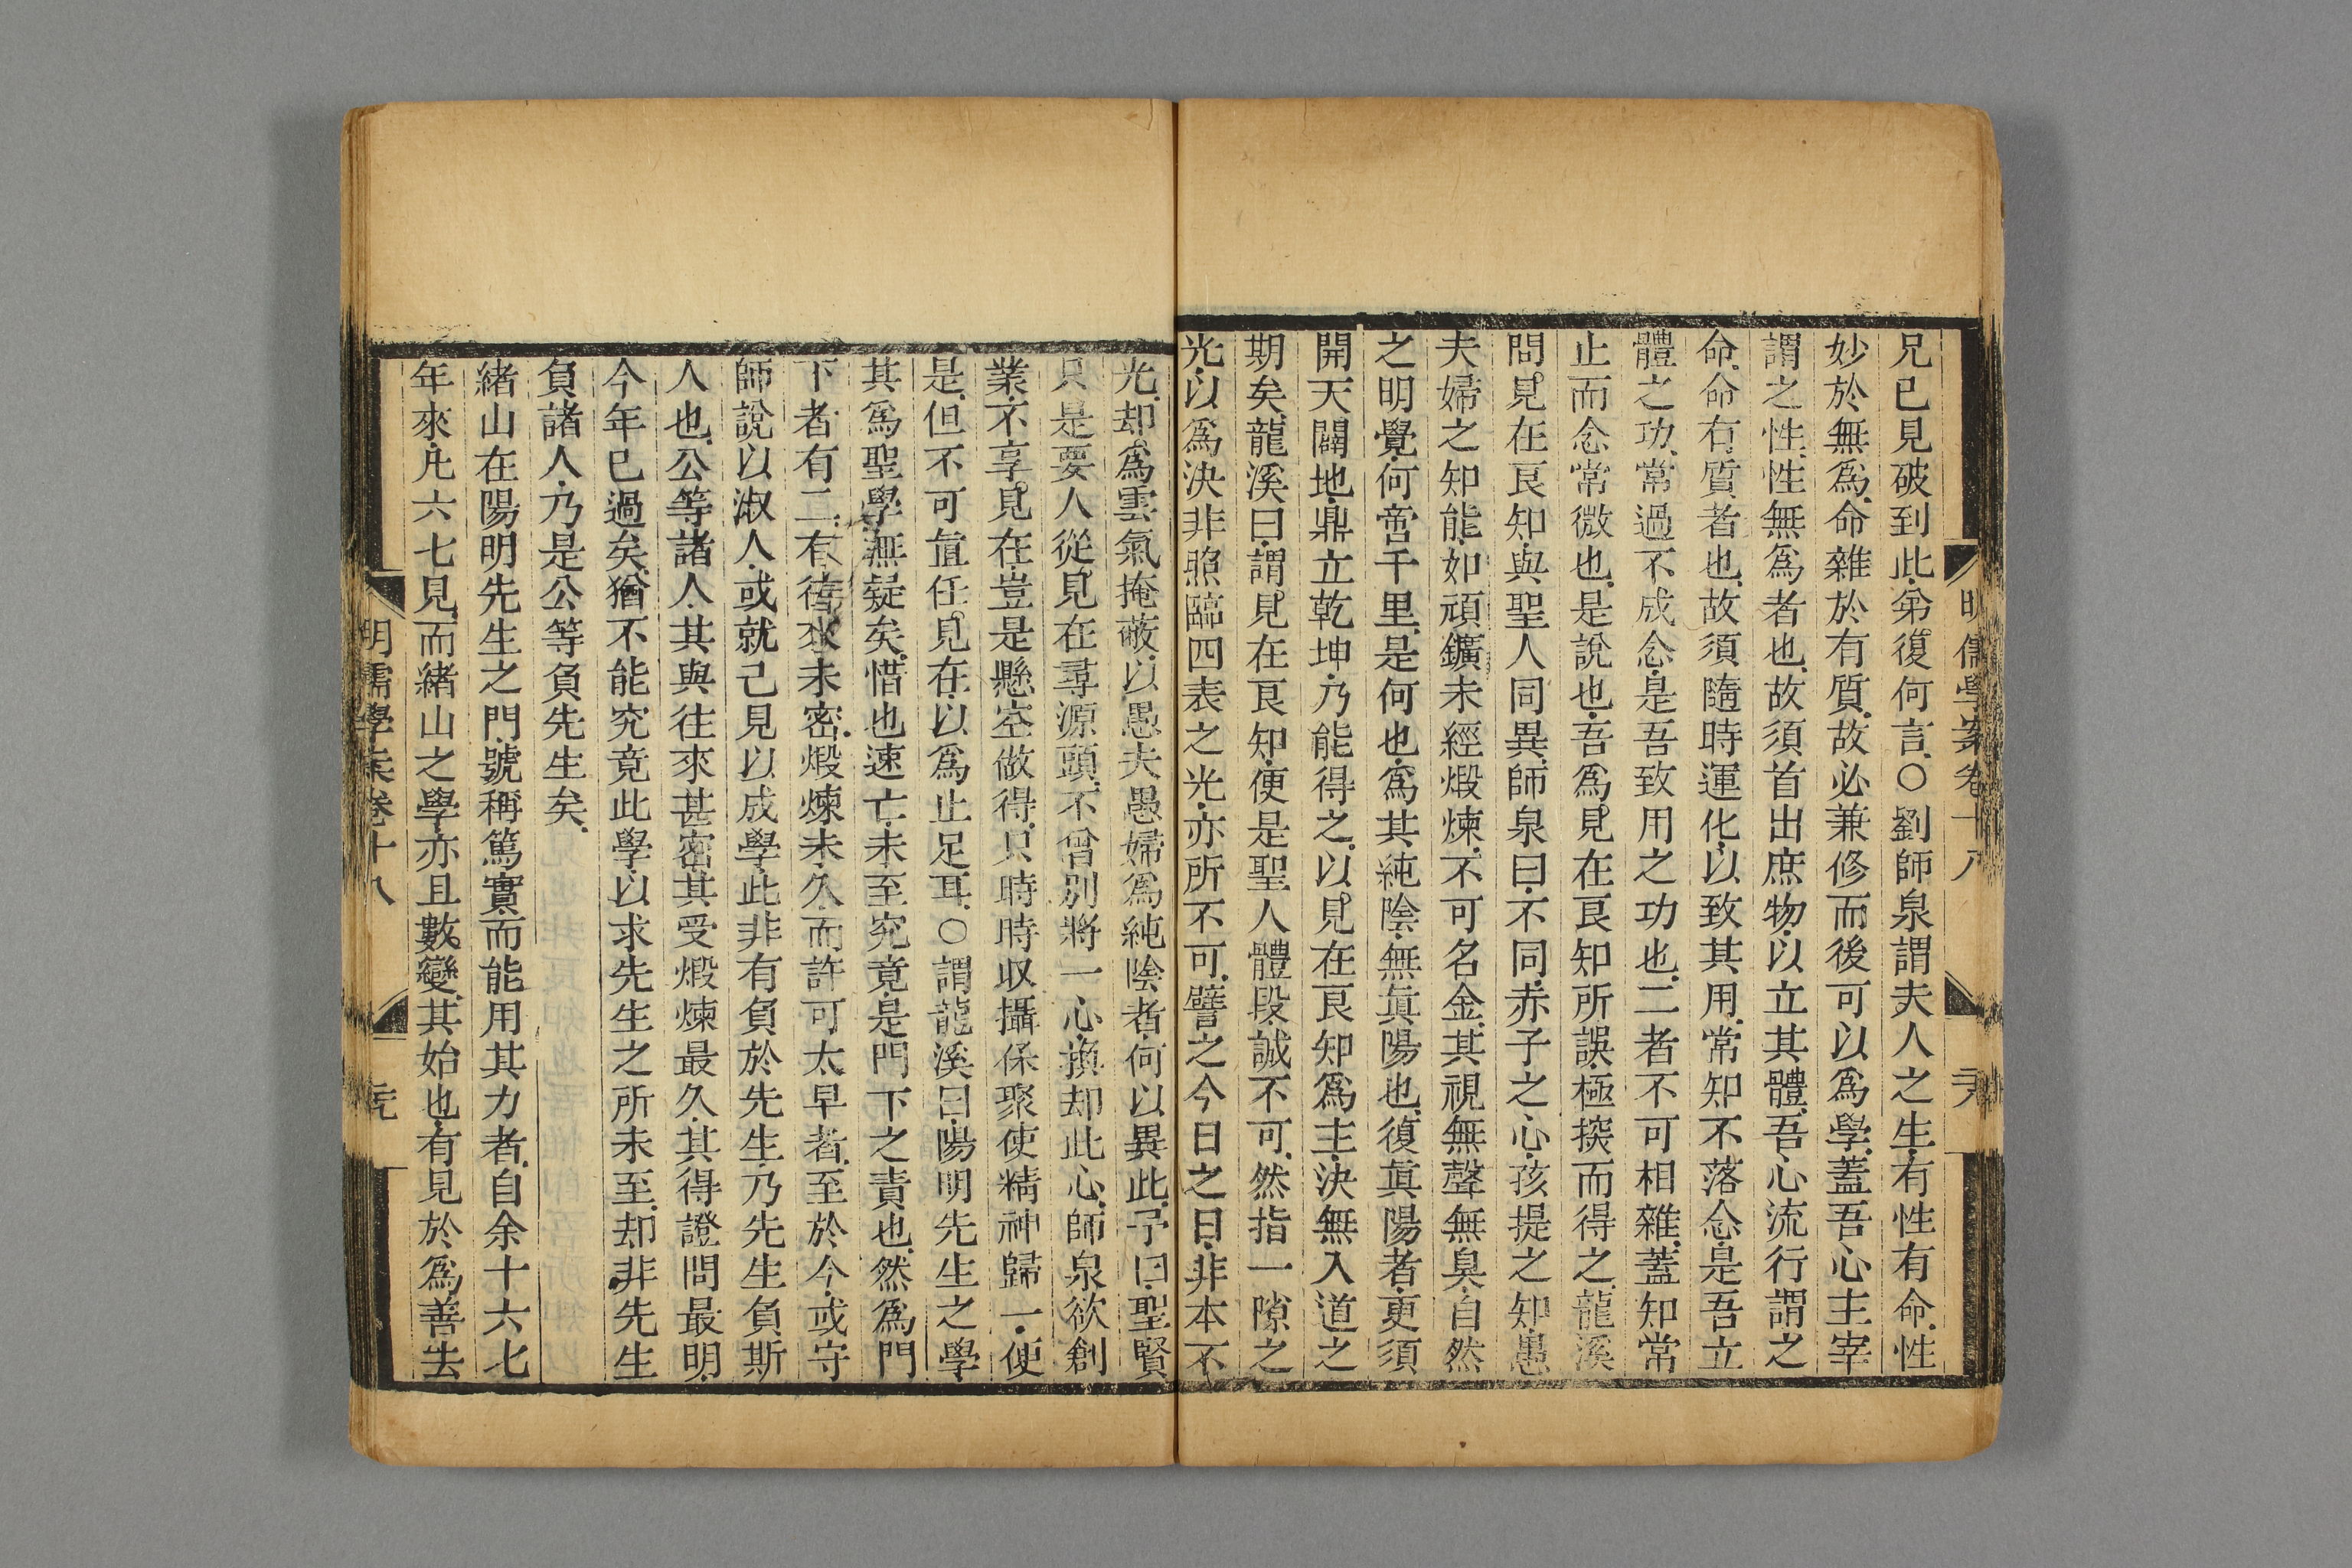 兄已見破到此.弟復何言.○劉師泉謂夫人之生.有性有命.性
妙於無爲.命雜於有質.故必兼修而後可以爲學.蓋吾心主宰
謂之性.性無爲者也.故須首出庶物.以立其體.吾心流行謂之
命.命有質者也.故須隨時運化.以致其用.常知不落念.是吾立
體之功.常過不成念.是吾致用之功也.二者不可相雜.蓋知常
止而念常微也.是說也.吾爲見在良知所誤.極探而得之.龍溪
問見在良知.與聖人同異.師泉曰.不同.赤子之心.孩提之知.愚
夫婦之知能.如頑鑛未經煅煉.不可名金.其視無聲無臭.自然
之明覺.何啻千里.是何也.爲其純陰.無眞陽也.復眞陽者.更須
開天闢地.鼎立乾坤.乃能得之.以見在良知爲主.決無入道之
期矣.龍溪曰.謂見在良知.便是聖人體段.誠不可.然指一隙之
光.以爲決非照臨四表之光.亦所不可.譬之今日之日.非本不
光.却爲雲氣掩蔽.以愚夫愚婦爲純陰者.何以異此.予曰.聖賢
只是要人從見在尋源頭.不曾別將一心.換却此心.師泉欲創
業.不享見在.豈是懸空做得.只時時収攝保聚.使精神歸一.便
是.但不可直任見在.以爲止足耳.○謂龍溪曰.陽明先生之學
其爲聖學無疑矣.惜也速亡.未至究竟.是門下之責也.然爲門
下者有二.有往來未密.煅煉未久.而許可太早者.至於今.或守
師說以淑人.或就己見以成學.此非有負於先生.乃先生負斯
人也.公等諸人.其與往來甚密.其受煅煉最久.其得證問最明.
今年已過矣.猶不能究竟此學.以求先生之所未至.却非先生
負諸人.乃是公等負先生矣.
緒山在陽明先生之門.號稱篤實.而能用其力者.自余十六七
年來.凡六七見.而緒山之學.亦且數變.其始也.有見於爲善去
明儒學案卷十八
明儒學案卷十八